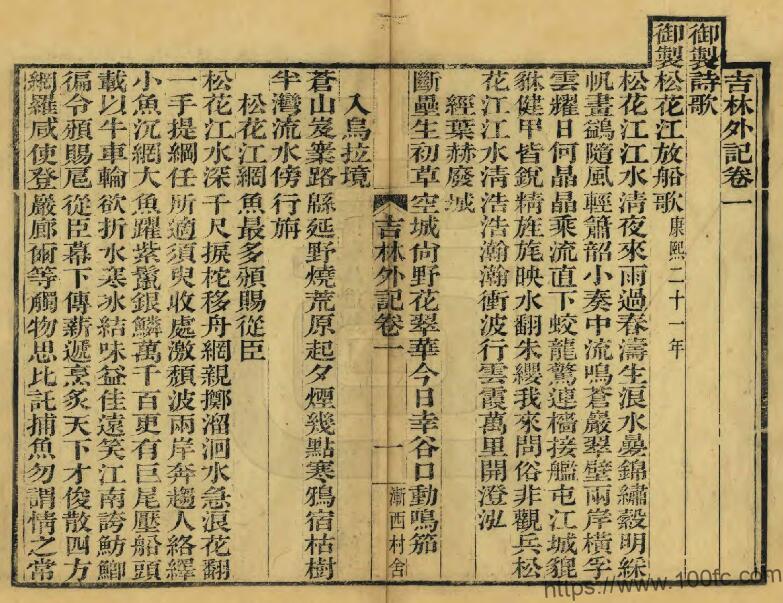 吉林外記卷一
御製詩歌
御製松花江放船歌康熙二十一年
松花江江水清夜來雨過春濤生浪水疊錦繡縠明綵
帆畫鷁隨風輕簫韶小奏中流鳴蒼巖翠壁兩岸橫孚
雲耀日何晶晶乘流直下蛟龍驚連檣接艦屯江城貔
貅健甲皆銳精旌旄映水翻朱纓我來問俗非觀兵松
花江江水清浩浩瀚瀚衝波行雲霞萬里開澄泓
經葉赫廢城
斷壘生初草空城尚野花翠華今日幸谷口動鳴笳
吉林外記卷一
一
漸西村舍
入烏拉境
蒼山岌嶪路緜延野燒荒原起夕煙幾點寒鴉宿枯樹
半灣流水傍行旃
松花江網魚最多頒賜從臣
松花江水深千尺捩柁移舟網親擲溜洄水急浪花翻
一手提綱任所適須臾收處激頽波兩岸奔趨人絡繹
小魚沉網大魚躍紫鬣銀鱗萬千百更有巨尾壓船頭
載以牛車輪欲折水寒冰結味益佳遠笑江南誇魴鯽
徧令頒賜扈從臣幕下傳薪遞烹炙天下才俊散四方
網羅咸使登嚴廊爾等觸物思比託捕魚勿謂情之常
https://www.100fc.com